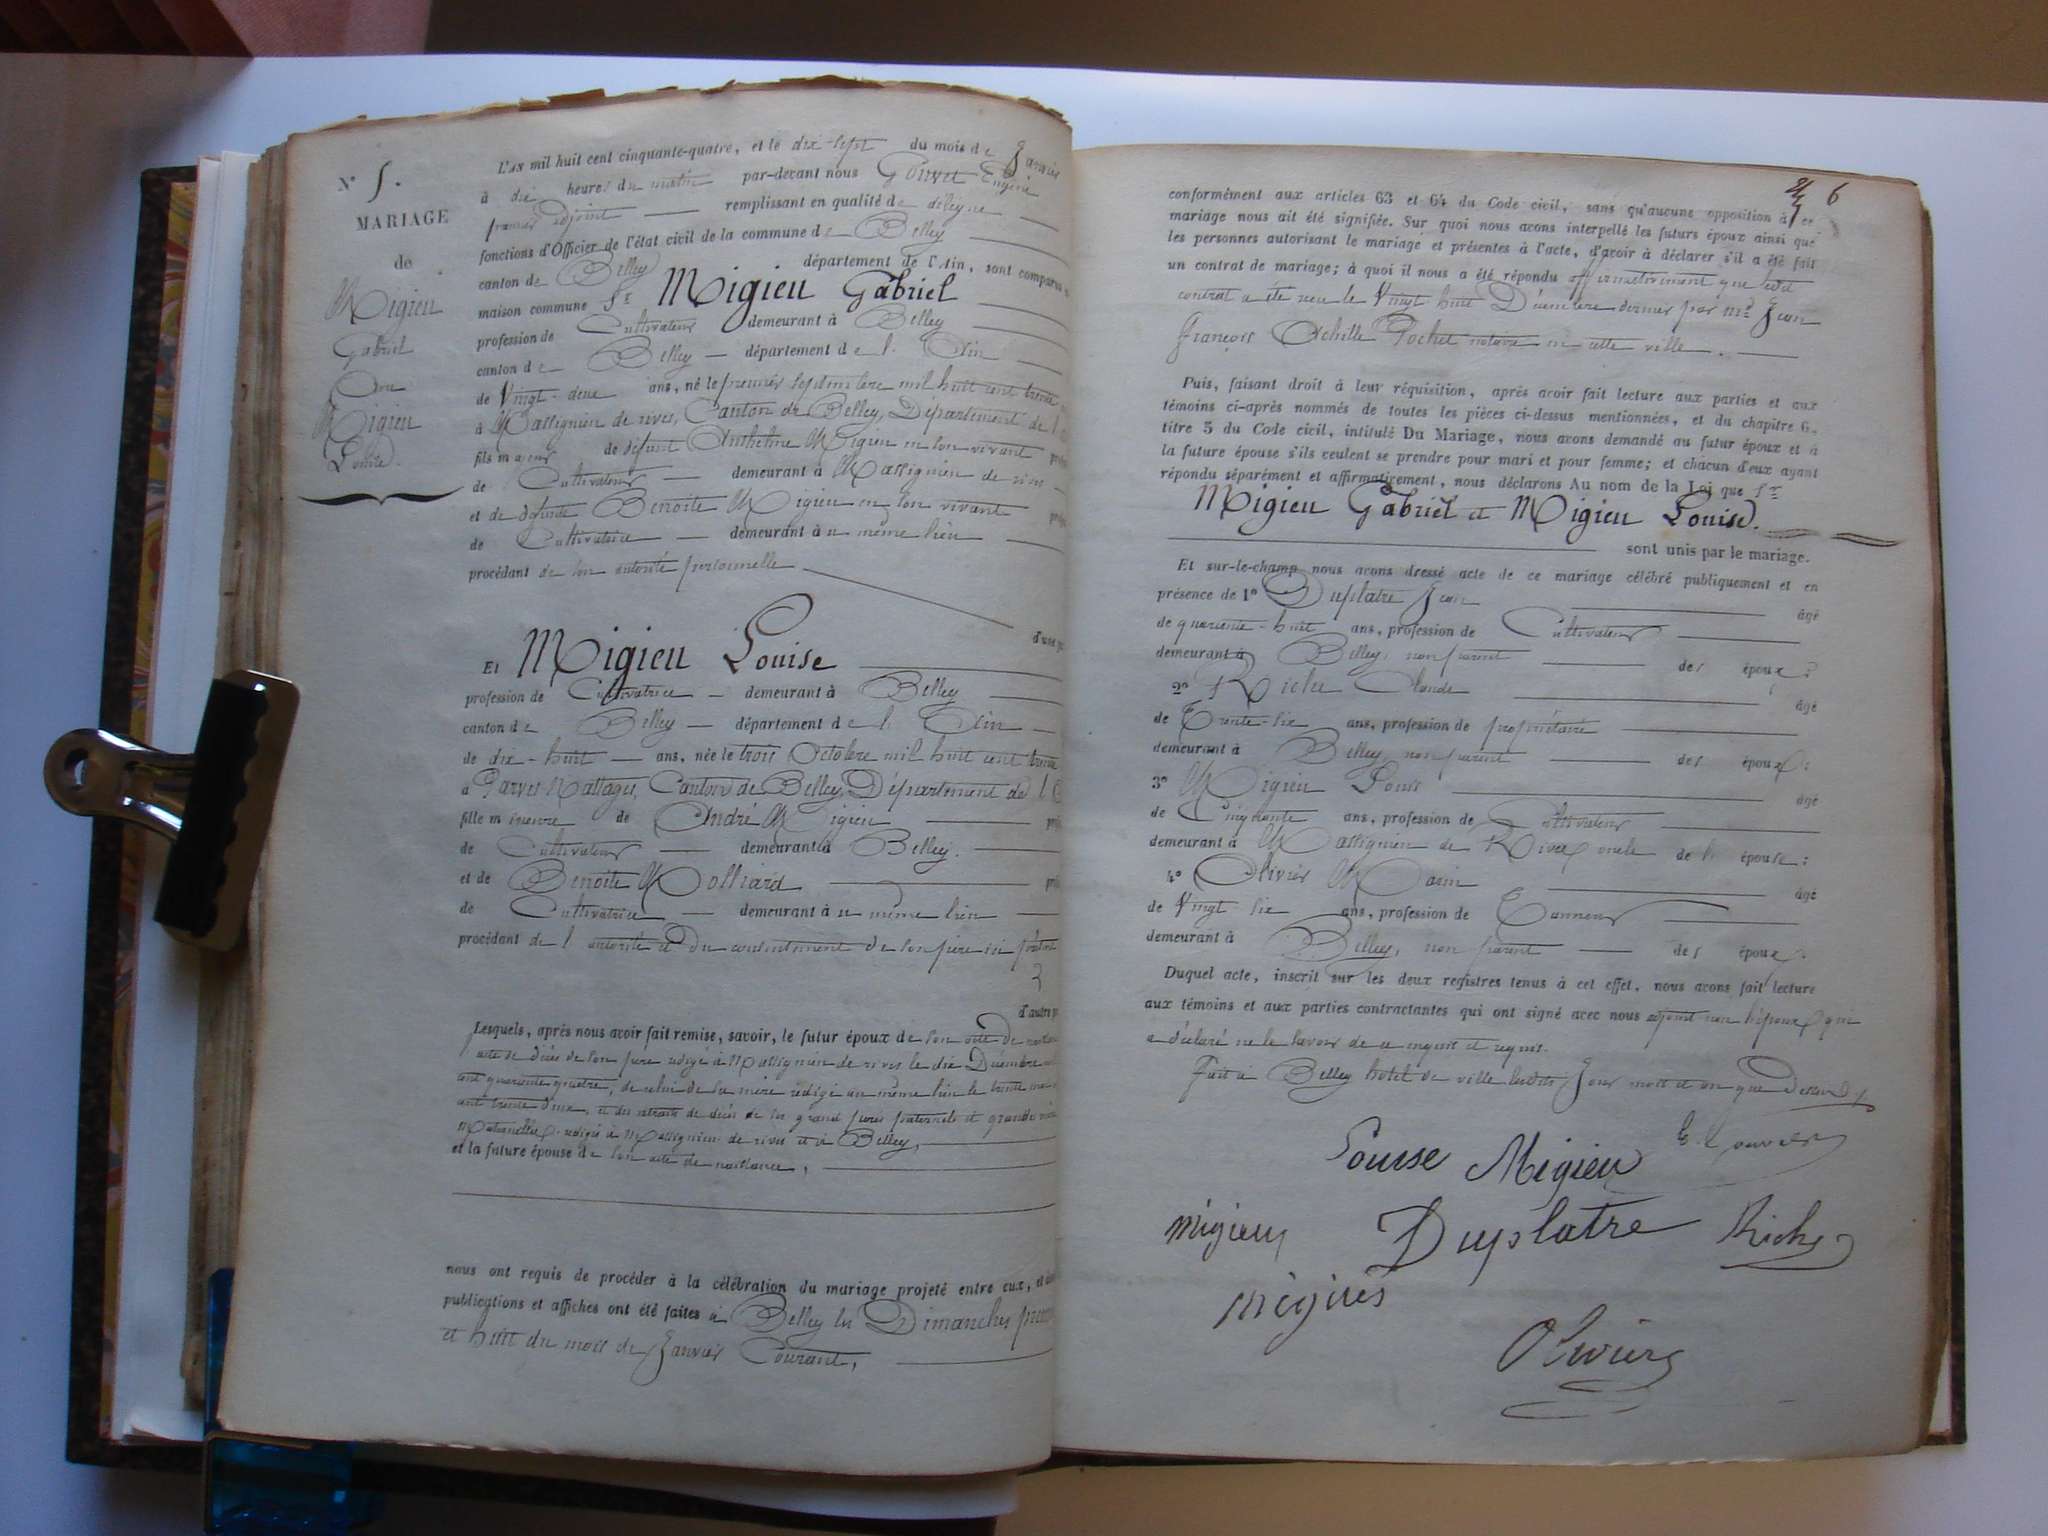 N° 5.
MARIAGE
de
Migieu
Gabriel
Migieu
Louise.
L'AN mil huit cent cinquante-quatre, et le dix-sept du mois de Janvier
à dix heures du matin par-devant nous Gouvet Eugène
premier adjoint remplissant en qualité de délégué
fonctions d'Officier de l'état civil de la commune de Belley
canton de Belley département de l'Ain, sont comparus
maison commune Sr Migieu Gabriel
profession de Cultivateur demeurant à Belley
canton de Belley département de l'Ain
de Vingt-deux ans, né le premier septembre mil huit cent trente
à Massignieu de rives, Canton de Belley, Département de l'
fils majeur de défunt Anthelme Migieu en son vivant
de Cultivateur demeurant à Massignieu de rives
et de défunte Benoite Migieu en son vivant
de Cultivatrice demeurant au même lieu
procédant de son autorité personnelle
Et Migieu Louise
profession de Cultivatrice demeurant à Belley
canton de Belley département de l'Ain
de dix-huit ans, née le trois Octobre mil huit cent trente
à Parves Nattages, Canton de Belley, Département de l'
fille mineure de André Migieu
de Cultivateur demeurant à Belley.
et de Benoite Molliard
de Cultivatrice demeurant au même lieu
procédant de l'autorité et du consentement de son père ici présent
d'autre
Lesquels, après nous avoir fait remise, savoir, le futur époux de son acte de naissance
acte de décès de son père rédigé à Massignieu de rives le dix Décembre
cent quarante quatre, de celui de sa mère rédigé au même lieu le trente
cent trente deux, et du extraits de décès de ses grand pères paternels et grande mère
maternelles rédigés à Massignieu de rives et à Belley,
et la future épouse de son acte de naissance,
nous ont requis de procéder à la célébration du mariage projeté entre eux, et
publications et affiches ont été faites à Belley les Dimanches premier
et huit du mois de Janvier Courant,
6
conformément aux articles 63 et 64 du Code civil, sans qu'aucune opposition à ce
mariage nous ait été signifiée. Sur quoi nous avons interpellé les futurs époux ainsi que
les personnes autorisant le mariage et présentes à l'acte, d'avoir à déclarer s'il a été fait
un contrat de mariage; à quoi il nous a été répondu affirmativement que ledit
contrat a été reçu le Vingt huit Décembre dernier par Me Jean
François Achille Pochet notaire en cette ville.
Puis, faisant droit à leur réquisition, après avoir fait lecture aux parties et aux
témoins ci-après nommés de toutes les pièces ci-dessus mentionnées, et du chapitre 6,
titre 5 du Code civil, intitulé Du Mariage, nous avons demandé au futur époux et à
la future épouse s'ils veulent se prendre pour mari et pour femme; et chacun d'eux ayant
répondu séparément et affirmativement, nous déclarons Au nom de la Loi que Sr
Migieu Gabriel et Migieu Louise.
sont unis par le mariage.
Et sur-le-champ nous avons dressé acte de ce mariage célébré publiquement et en
présence de 1° Duplatre Jean âgé
de quarante-huit ans, profession de Cultivateur
demeurant à Belley, non parent des époux;
2° Riche Claude âgé
de Trente-six ans, profession de propriétaire
demeurant à Belley, non parent des époux;
3° Migieu Louis âgé
de Cinquante ans, profession de Cultivateur
demeurant à Massignieu de Rives oncle de l'épouse;
4° Olivier Marin âgé
de Vingt-six ans, profession de Tanneur
demeurant à Belley, non parent des époux.
Duquel acte, inscrit sur les deux registres tenus à cet effet, nous avons fait lecture
aux témoins et aux parties contractantes qui ont signé avec nous adjoint non l'époux qui
a déclaré ne le savoir de ce enquis et requis.
Fait à Belley hotel de ville lesdits Jour mois et an que dessus
Louise Migieu
migieu Duplatre Riche
migieu
Olivier